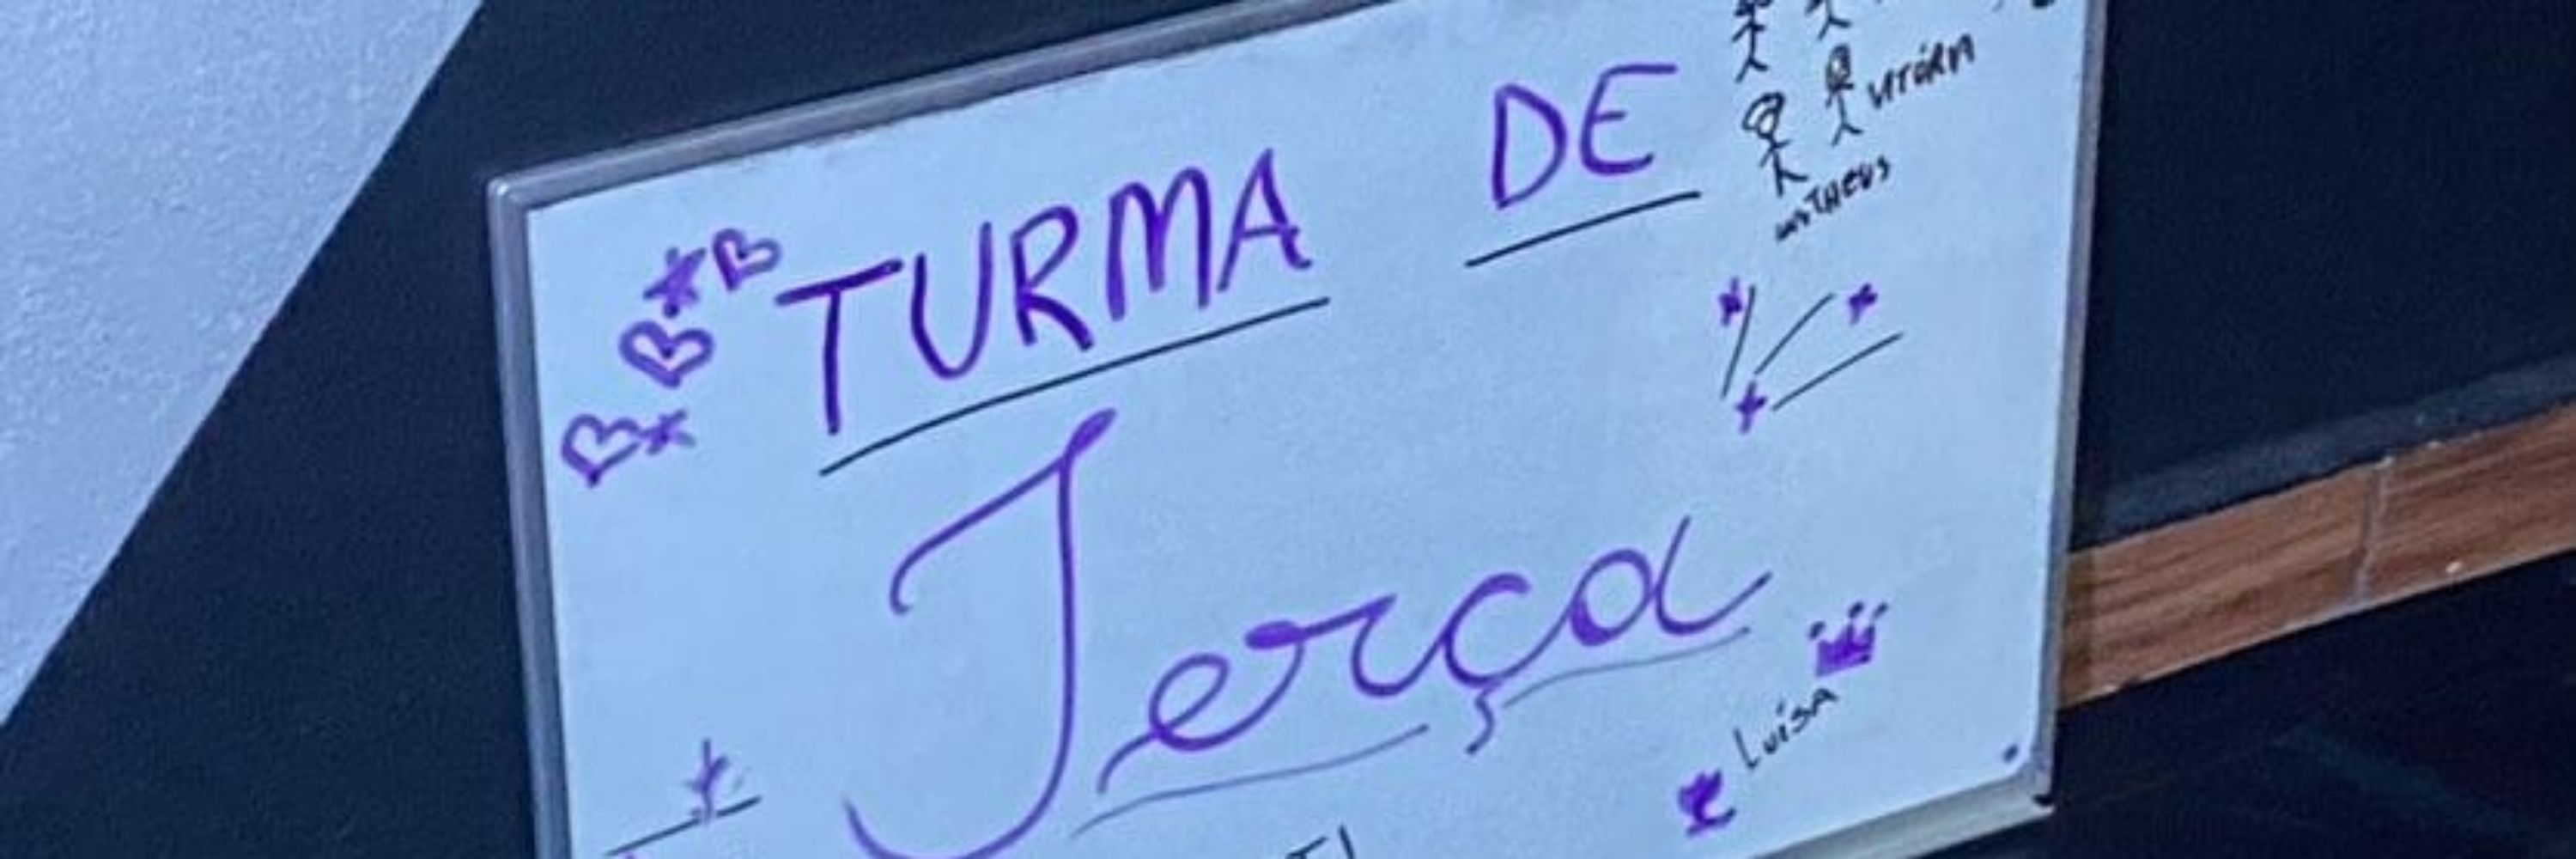 VITÓRIA
MATHEUS
TURMA DE
Terça
Luísa